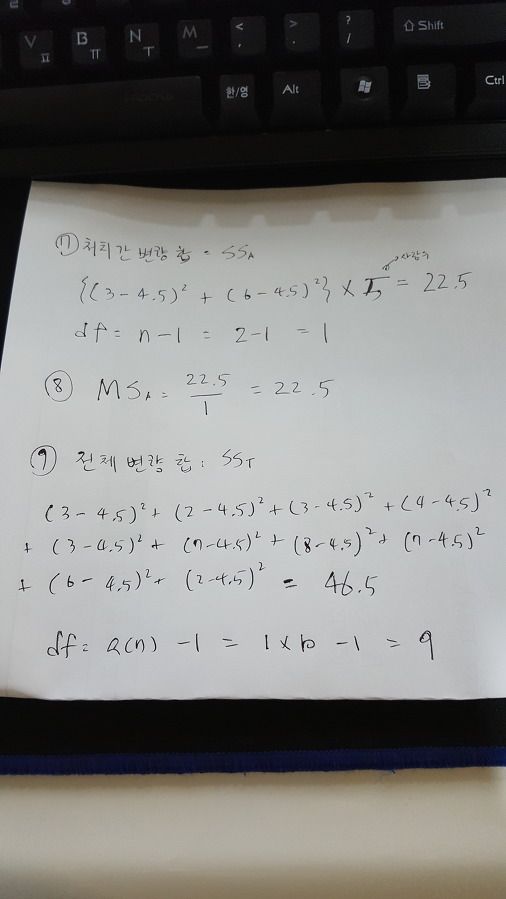 V ㅍ
B ㅠ
N ㅜ
M ㅡ
< ,
> .
? /
⇧ Shift
한/영
Alt
Ctrl
⑦ 처치간 변량 합 = SSA
사람수
{(3-4.5)² + (6-4.5)²} × 5 = 22.5
df = n-1 = 2-1 = 1
⑧ MSA = 22.5/1 = 22.5
⑨ 전체 변량 합 : SST
(3-4.5)² + (2-4.5)² + (3-4.5)² + (4-4.5)²
+ (3-4.5)² + (7-4.5)² + (8-4.5)² + (7-4.5)²
+ (6-4.5)² + (2-4.5)² = 46.5
df = a(n) -1 = 1×10 -1 = 9